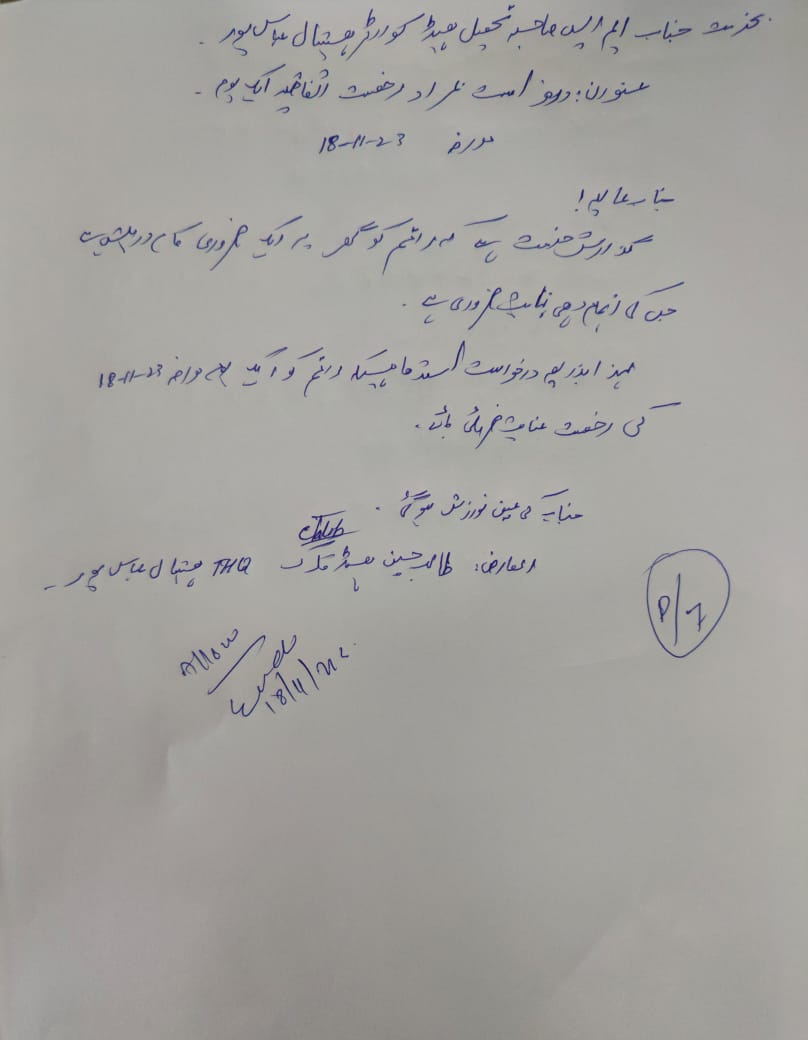 بخدمت جناب ایم ایس صاحب تحصیل ہیڈ کوارٹر ہسپتال عباس پور۔
عنوان: درخواست بمراد رخصت اتفاقیہ ایک یوم۔
مورخہ 18-11-23
جناب عالیہ!
گذارش خدمت ہے کہ راقم کو گھر پہ ایک ضروری کام درپیش ہے
جس کی انجام دہی نہایت ضروری ہے۔
لہذا بذریعہ درخواست استدعا ہیکہ راقم کو ایک یوم مورخہ 18-11-23
کی رخصت عنایت فرمائی جائے۔
جناب کی عین نوازش ہوگی۔
العارض: طاہر حسین ہیڈ کلرک THQ ہسپتال عباس پور۔
P/7
Allow